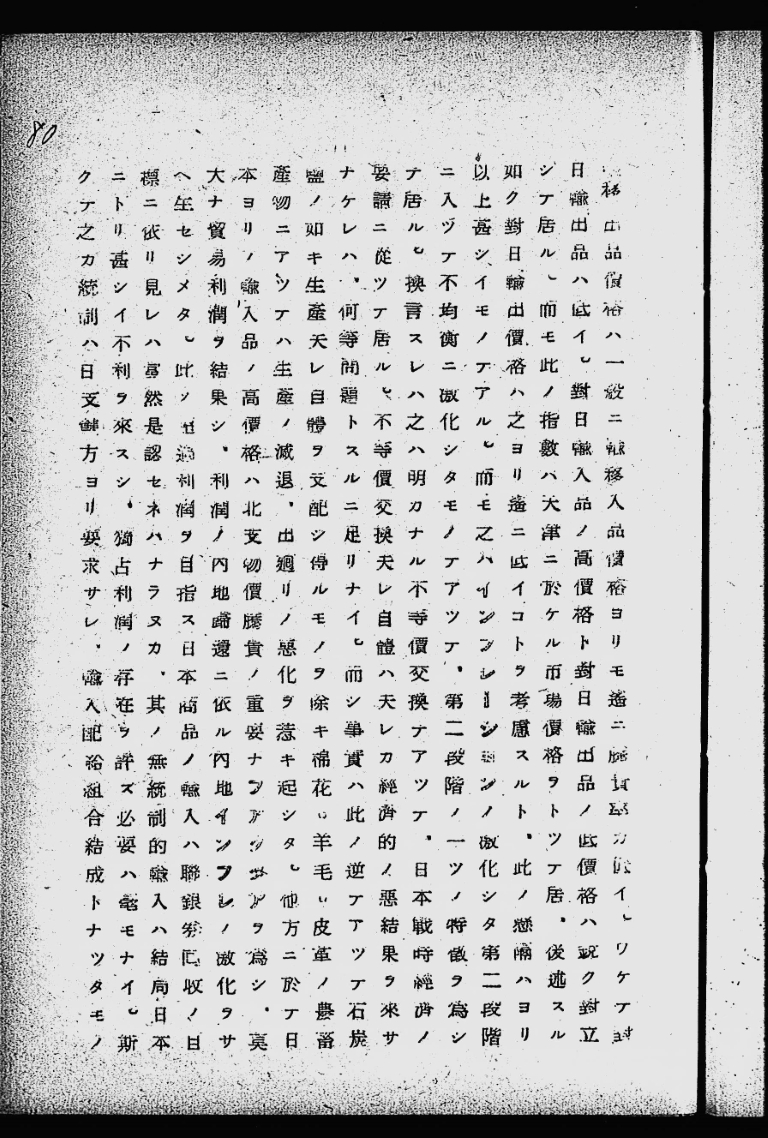 80
移出品價格ハ一般ニ輸移入品價格ヨリモ遙ニ騰貴率カ低イ。ワケテ對
日輸出品ハ低イ。對日輸入品ノ高價格ト對日輸出品ノ低價格ハ鋭ク對立
シテ居ル。而モ此ノ指數ハ天津ニ於ケル市場價格ヲトツテ居、後述スル
如ク對日輸出價格ハ之ヨリ遙ニ低イコトヲ考慮スルト、此ノ懸隔ハヨリ
以上甚シイモノテアル。而モ之ハインフレーシヨンノ激化シタ第二段階
ニ入ツテ不均衡ニ激化シタモノテアツテ、第二段階ノ一ツノ特徴ヲ爲シ
テ居ル。換言スレハ之ハ明カナル不等價交換テアツテ、日本戰時經濟ノ
要請ニ從ツテ居ル。不等價交換夫レ自體ハ夫レカ經濟的ノ惡結果ヲ來サ
ナケレハ、何等問題トスルニ足リナイ。而シ事實ハ此ノ逆テアツテ石炭
鹽ノ如キ生產夫レ自體ヲ支配シ得ルモノヲ除キ棉花。羊毛。皮革ノ農畜
產物ニアツテハ生產ノ減退、出廻リノ惡化ヲ惹キ起シタ。他方ニ於テ日
本ヨリノ輸入品ノ高價格ハ北支物價騰貴ノ重要ナフアクタアヲ爲シ、莫
大ナ貿易利潤ヲ結果シ、利潤ノ內地歸還ニ依ル內地インフレノ激化ヲサ
ヘ生セシメタ。此ノ利潤ヲ目指ス日本商品ノ輸入ハ聯銀券回收ノ目
標ニ依リ見レハ當然是認セネハナラヌカ、其ノ無統制的輸入ハ結局日本
ニトリ甚シイ不利ヲ來スシ、獨占利潤ノ存在ヲ許ス必要ハ毫モナイ。斯
クテ之カ統制ハ日支雙方ヨリ要求サレ、輸入配給組合結成トナツタモノ